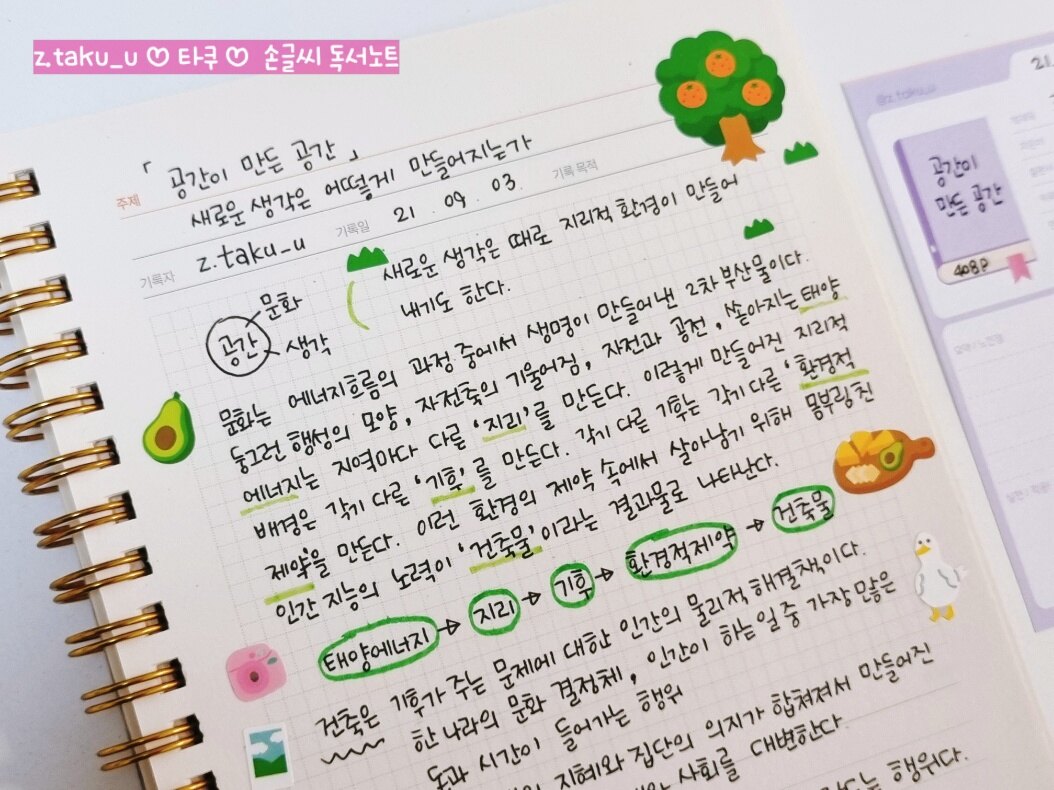 z.taku_u ♡ 타쿠 ♡ 손글씨 독서노트
주제 「공간이 만든 공간」
새로운 생각은 어떻게 만들어지는가
기록자 z.taku_u 기록일 21 . 09 . 03. 기록 목적
공간 문화 생각
새로운 생각은 때로 지리적 환경이 만들어
내기도 한다.
문화는 에너지흐름의 과정 중에서 생명이 만들어 낸 2차 부산물이다.
둥그런 행성의 모양, 자전축의 기울어짐, 자전과 공전, 쏟아지는 태양
에너지는 지역마다 다른 '지리'를 만든다. 이렇게 만들어진 지리적
배경은 각기 다른 '기후'를 만든다. 각기 다른 기후는 각기 다른 '환경적
제약'을 만든다. 이런 환경의 제약 속에서 살아남기 위해 몸부림친
인간 지능의 노력이 '건축물'이라는 결과물로 나타난다.
태양에너지 → 지리 → 기후 → 환경적제약 → 건축물
건축은 기후가 주는 문제에 대한 인간의 물리적 해결책이다.
한 나라의 문화 결정체, 인간이 하는 일 중 가장 많은
돈과 시간이 들어가는 행위
지혜와 집단의 의지가 합쳐져서 만들어진
사회를 대변한다.
행위다.
@z.taku_u
21.
공간이
만든 공간
408P